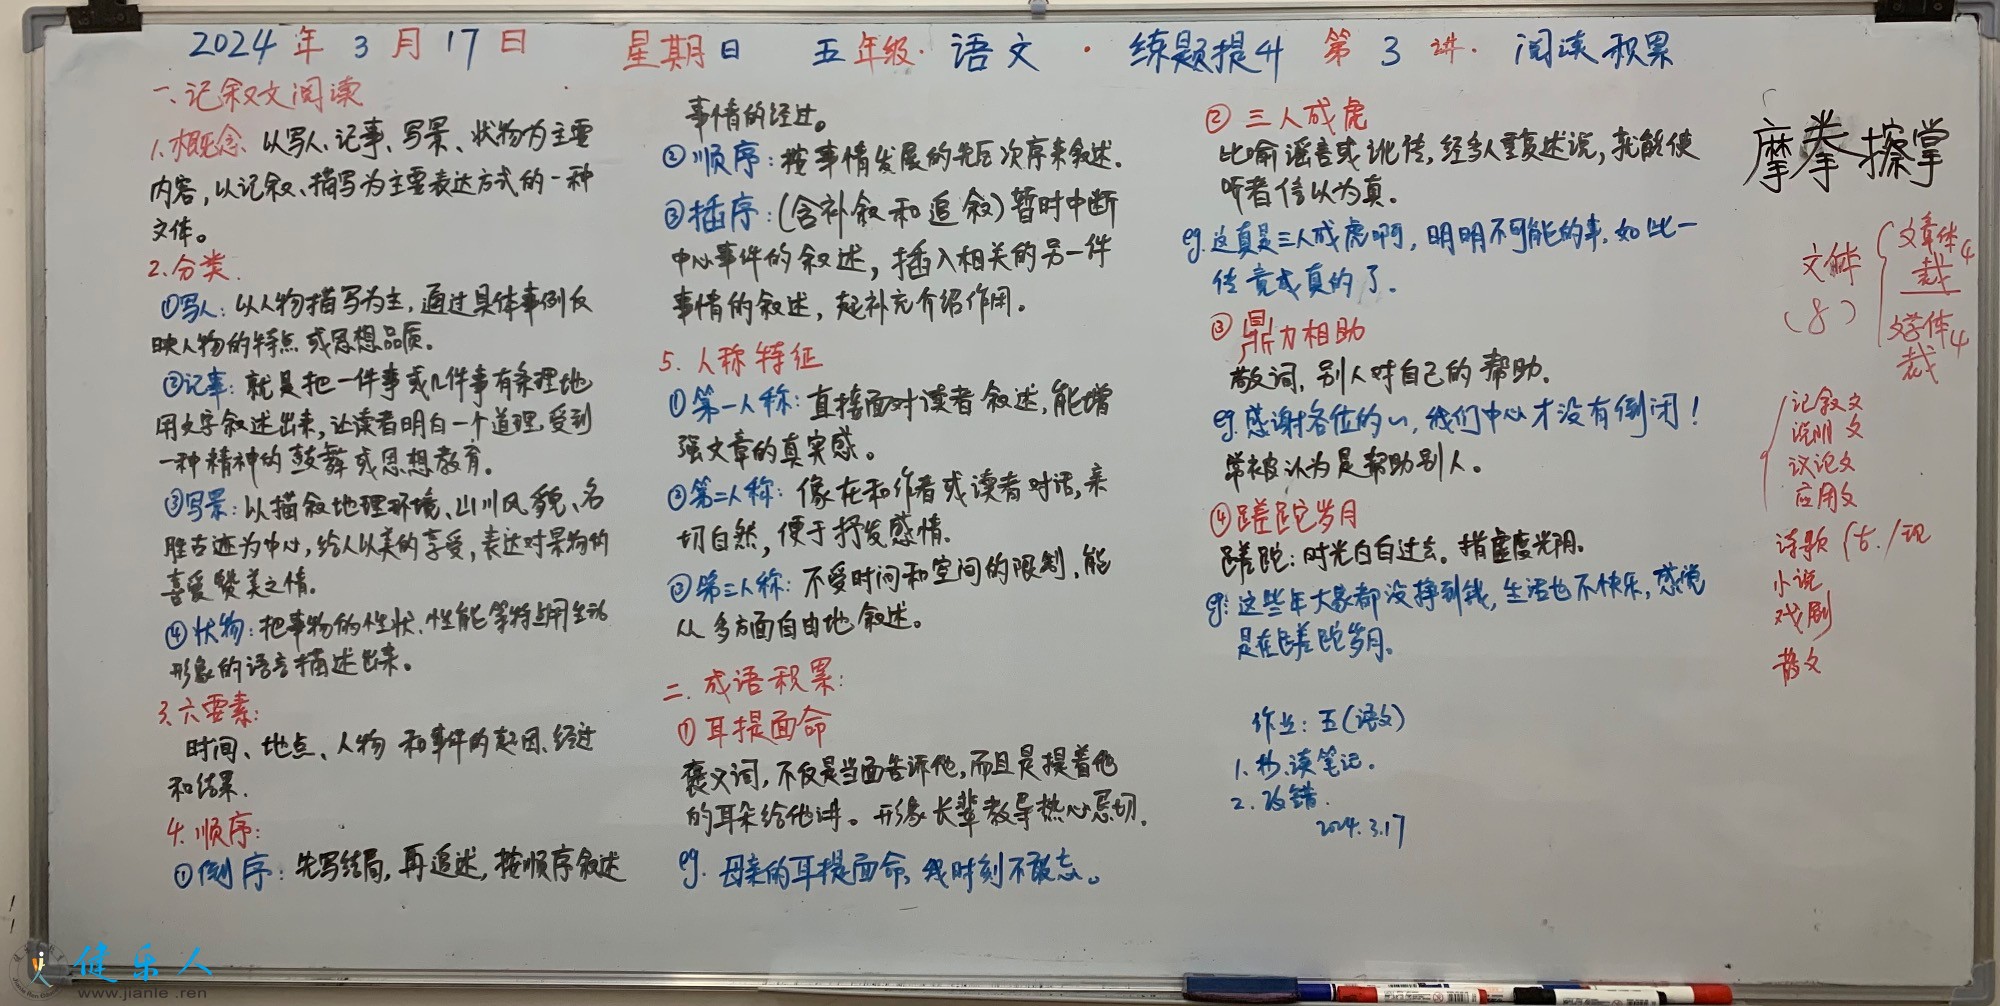 2024年3月17日 星期日 五年级·语文·练题提升 第3讲·阅读积累
一、记叙文阅读
1.概念、以写人、记事、写景、状物为主要
内容，以记叙、描写为主要表达方式的一种
文体。
2.分类.
①写人：以人物描写为主，通过具体事例反
映人物的特点或思想品质。
②记事：就是把一件事或几件事有条理地
用文字叙述出来，让读者明白一个道理，受到
一种精神的鼓舞或思想教育。
③写景：以描叙地理环境、山川风貌、名
胜古迹为中心，给人以美的享受，表达对景物的
喜爱赞美之情。
④状物：把事物的性状、性能等特点用生动
形象的语言描述出来。
3.六要素：
时间、地点、人物和事件的起因、经过
和结果.
4.顺序：
①倒序：先写结局，再追述，按顺序叙述
事情的经过。
②顺序：按事情发展的先后次序来叙述.
③插序：（含补叙和追叙）暂时中断
中心事件的叙述，插入相关的另一件
事情的叙述，起补充介绍作用。
5.人称特征
①第一人称：直接面对读者叙述，能增
强文章的真实感。
②第二人称：像在和作者或读者对话，亲
切自然，便于抒发感情.
③第三人称：不受时间和空间的限制，能
从多方面自由地叙述。
二.成语积累：
①耳提面命
褒义词，不仅是当面告诉他，而且是提着他
的耳朵给他讲。形象长辈教导热心恳切.
eg.母亲的耳提面命，我时刻不敢忘。
②三人成虎
比喻谣言或讹传，经多人重复述说，就能使
听者信以为真。
eg.这真是三人成虎啊，明明不可能的事，如此一
传竟成真的了.
③鼎力相助
敬词，别人对自己的帮助.
eg.感谢各位的~，我们中心才没有倒闭！
常被认为是帮助别人。
④蹉跎岁月
蹉跎：时光白白过去。指虚度光阴.
eg：这些年大家都没挣到钱，生活也不快乐，感觉
是在蹉跎岁月.
作业：五（语文）
1.抄、读笔记.
2.改错.
2024.3.17
摩拳擦掌
文体
（8）
文章体裁4
文学体裁4
记叙文
说明文
议论文
应用文
诗歌（古/现
小说
戏剧
散文
健乐人
www.jianle.ren